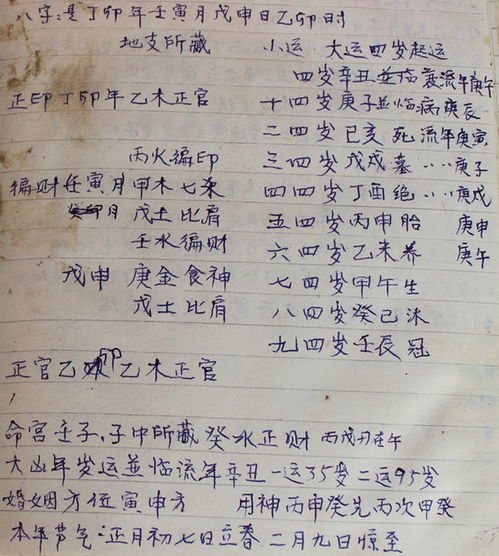 八字:是丁卯年壬寅月戊申日乙卯时
地支所藏 小运 大运四岁起运
四岁辛丑並临衰流年庚午
正印丁卯年乙木正官 十四岁庚子並临病庚辰
二四岁己亥 死 流年庚寅
丙火偏印 三四岁戊戌墓‥‥庚子
偏财壬寅月甲木七杀 四四岁丁酉绝‥‥庚戌
月 戊土比肩 五四岁丙申胎 庚申
壬水偏财 六四岁乙未养 庚午
戊申 庚金食神 七四岁甲午生
戊土比肩 八四岁癸巳沐
九四岁壬辰冠
正官乙卯乙木正官
命宫壬子,子中所藏癸水正财 丙戊刃在午
大凶年岁运並临流年辛丑一运35岁二运95岁
婚姻方位寅申方 用神丙甲癸先丙次甲癸
本年节气:正月初七日立春 二月九日惊至